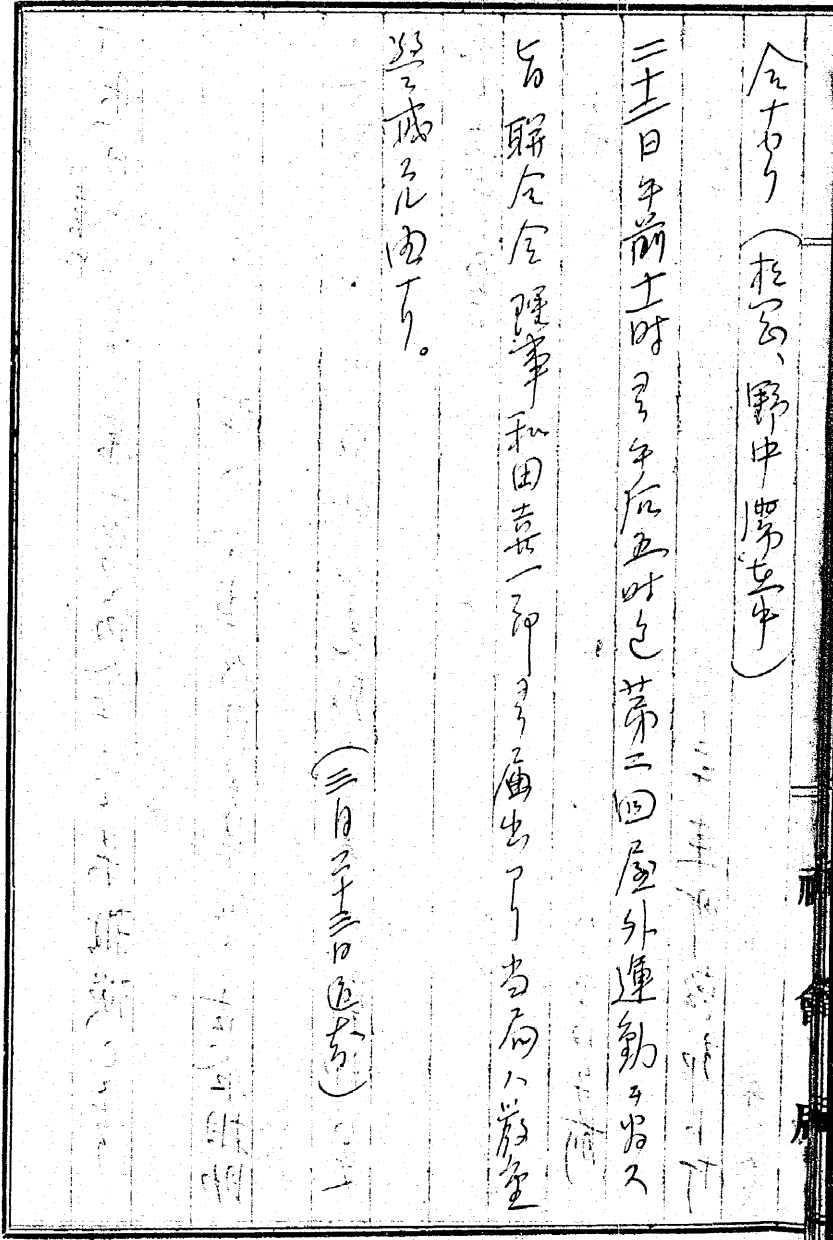 合ナカリ（松岡、野中滞在中）
二十三日午前十時ヨリ午后五時迄第二回屋外運動ヲ為ス
旨聯合会理事和田喜一郎ヨリ届出アリ当局ハ厳重
警戒元由ナリ。
（三月二十三日